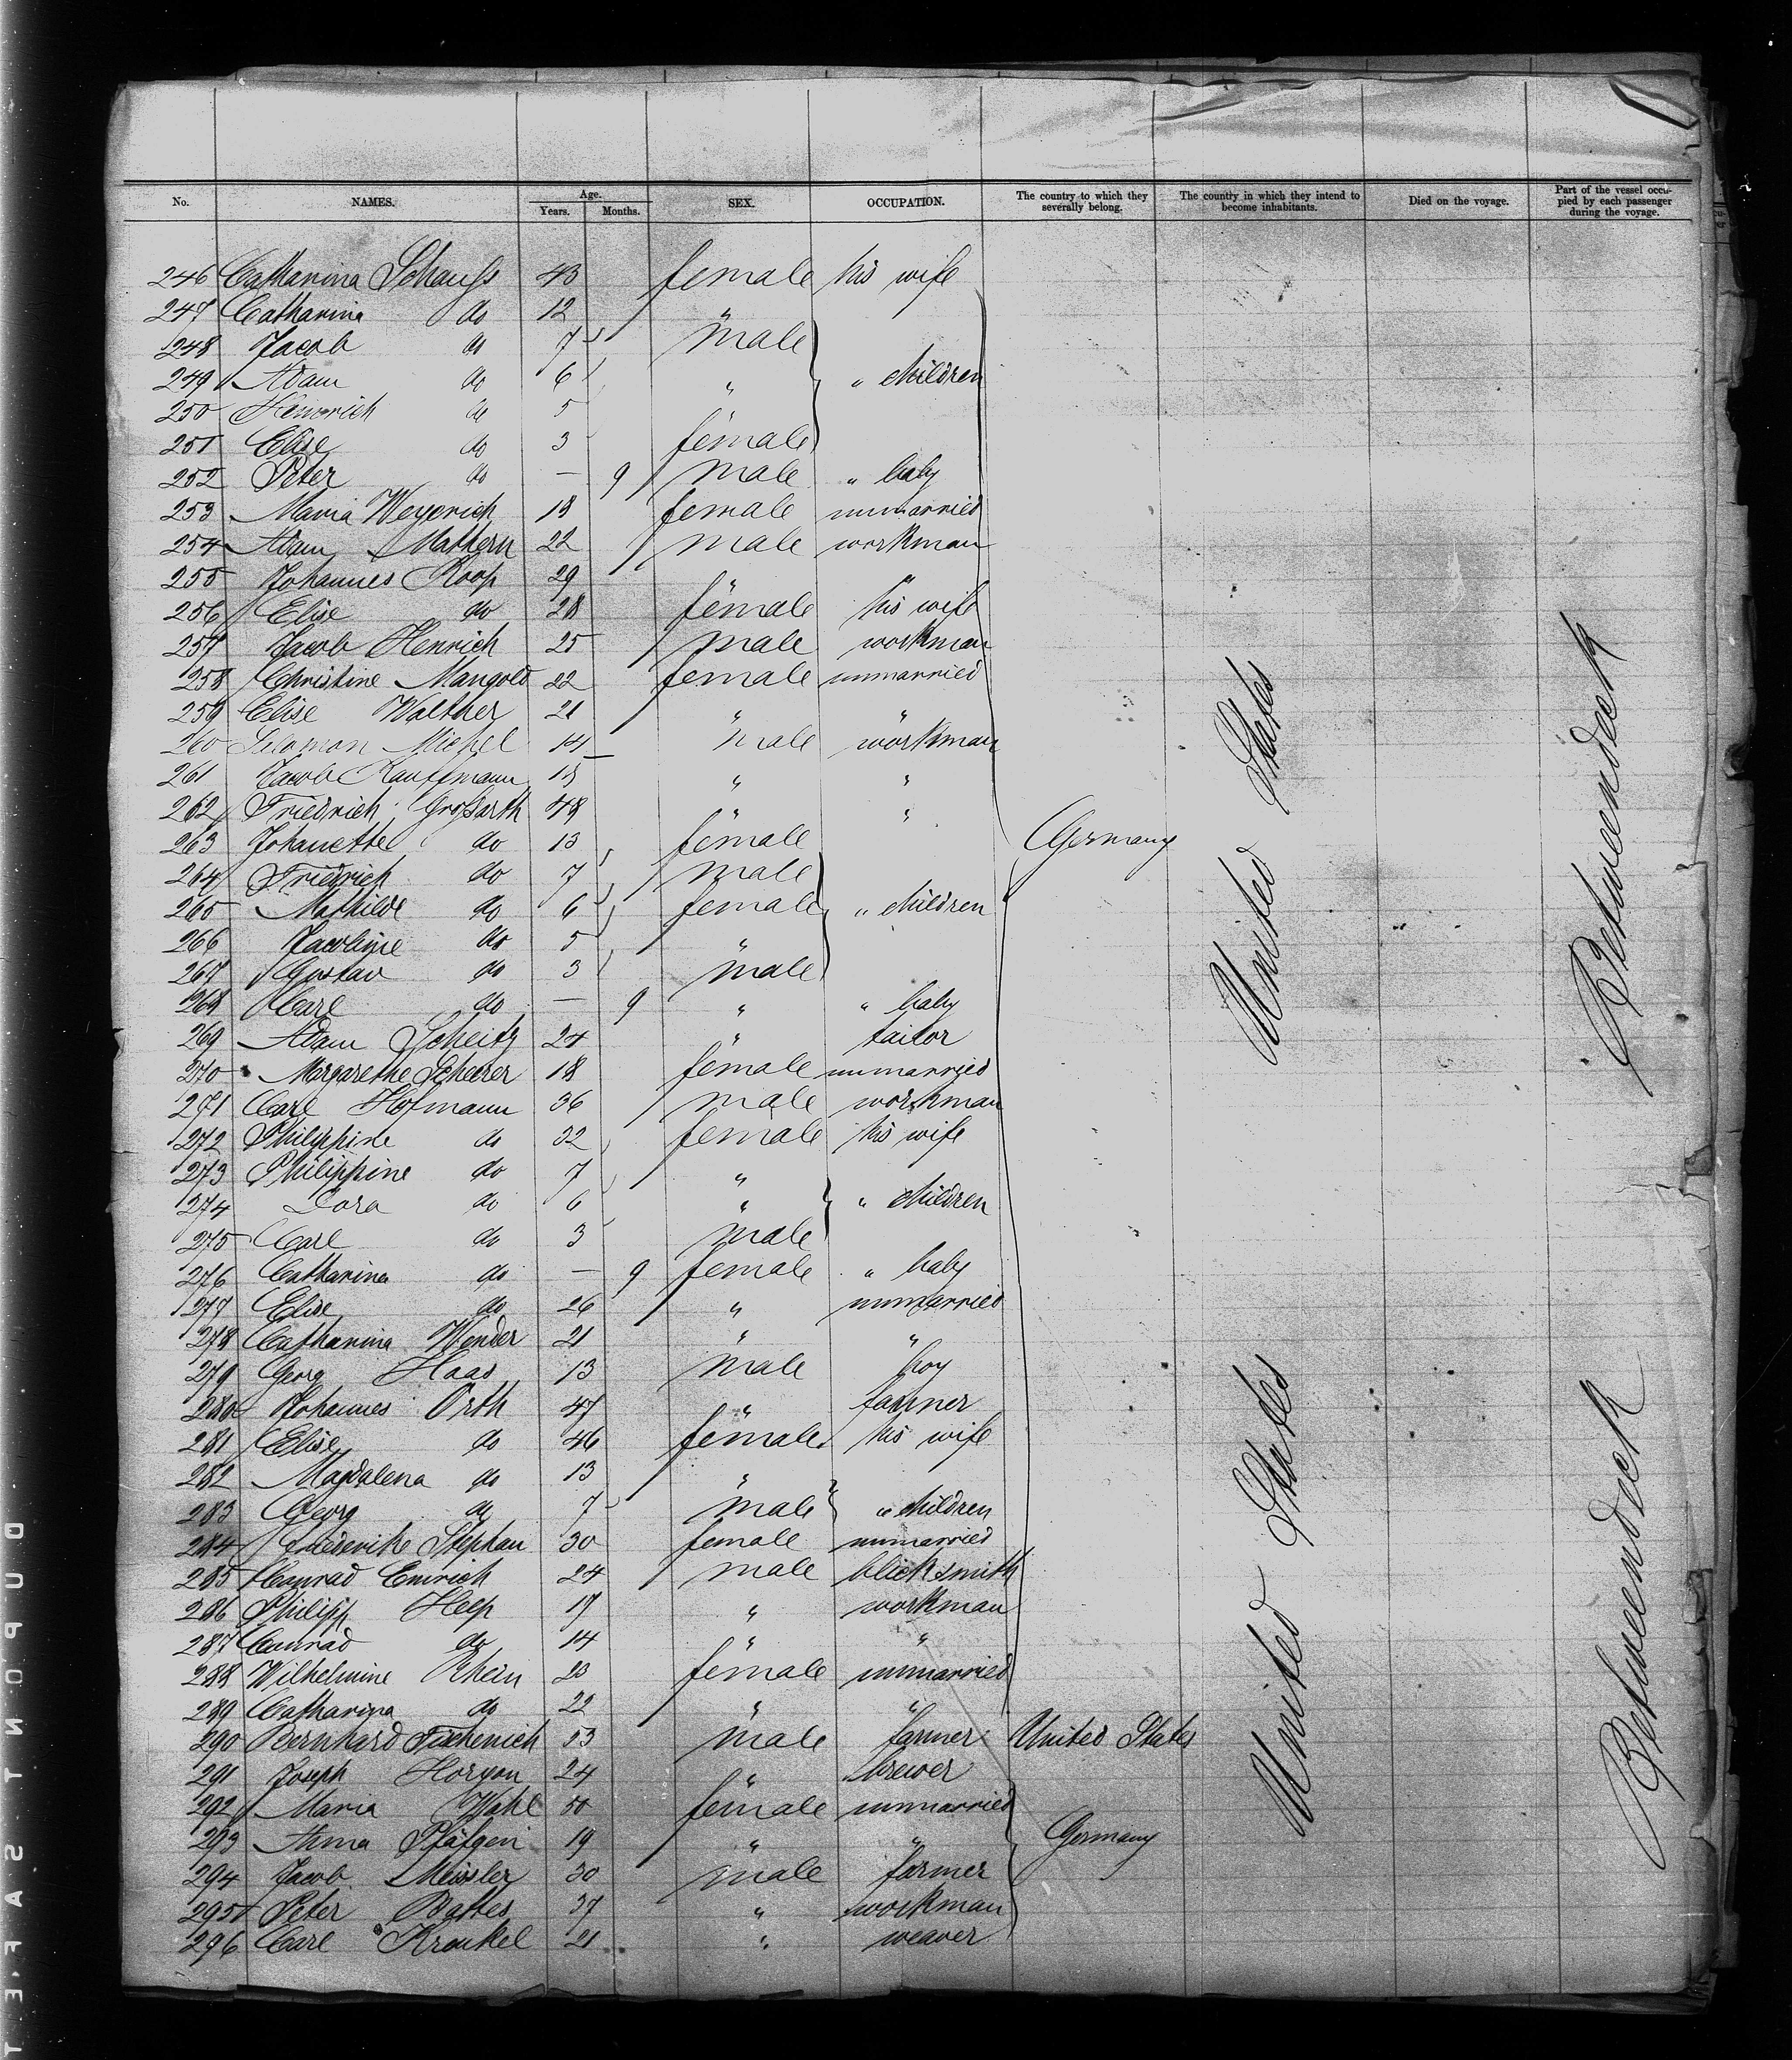 No. NAMES. Age. Years. Months. SEX. OCCUPATION. The country to which they severally belong. The country in which they intend to become inhabitants. Died on the voyage. Part of the vessel occupied by each passenger during the voyage.
246 Catharina Schauß 43 female his wife
247 Catharina do 12 "
248 Jacob do 7 male
249 Adam do 6 " " children
250 Heinrich do 5
251 Elise do 3 female
252 Peter do — 9 male " baby
253 Maria Weyerich 18 female unmarried
254 Adam Mathern 22 male workman
255 Johannes Roop 29 " "
256 Elise do 28 female his wife
257 Jacob Henrich 25 male workman
258 Christine Mangold 22 female unmarried
259 Elise Walther 21 " "
260 Salomon Michel 14 male workman
261 Jacob Kauffmann 15 " "
262 Friedrich Großarth 48 "
263 Johanette do 13 female Germany
264 Friedrich do 7 male
265 Mathilde do 6 female " children
266 Jacobine do 5 "
267 Gustav do 3 male
268 Carl do — 9 " " baby
269 Adam Scheitz 24 " tailor
270 Margarethe Scherer 18 female unmarried
271 Carl Hofmann 36 male workman
272 Philippine do 32 female his wife
273 Philippine do 7 "
274 Dora do 6 " " children
275 Carl do 3 male
276 Catharina do — 9 female " baby
277 Elise do 26 " unmarried
278 Catharina Wender 21 " "
279 Georg Haas 13 male boy
280 Johannes Orth 47 " farmer
281 Elise do 46 female his wife
282 Magdalena do 13 "
283 Georg do 7 male " children
284 Friederike Stephan 30 female unmarried
285 Conrad Emrich 24 male blacksmith
286 Philipp Heep 17 " workman
287 Conrad do 14 " "
288 Wilhelmine Rhein 23 female unmarried
289 Catharina do 22 " "
290 Bernhard 53 male farmer United States
291 Joseph 24 " brewer
292 Maria Wahl 50 female unmarried
293 Anna Pfäfgen 19 " " Germany
294 Jacob Meissler 30 male farmer
295 Peter Battes 37 " workman
296 Carl Kronkel 21 " weaver
United States
United States
Betweendeck
Betweendeck